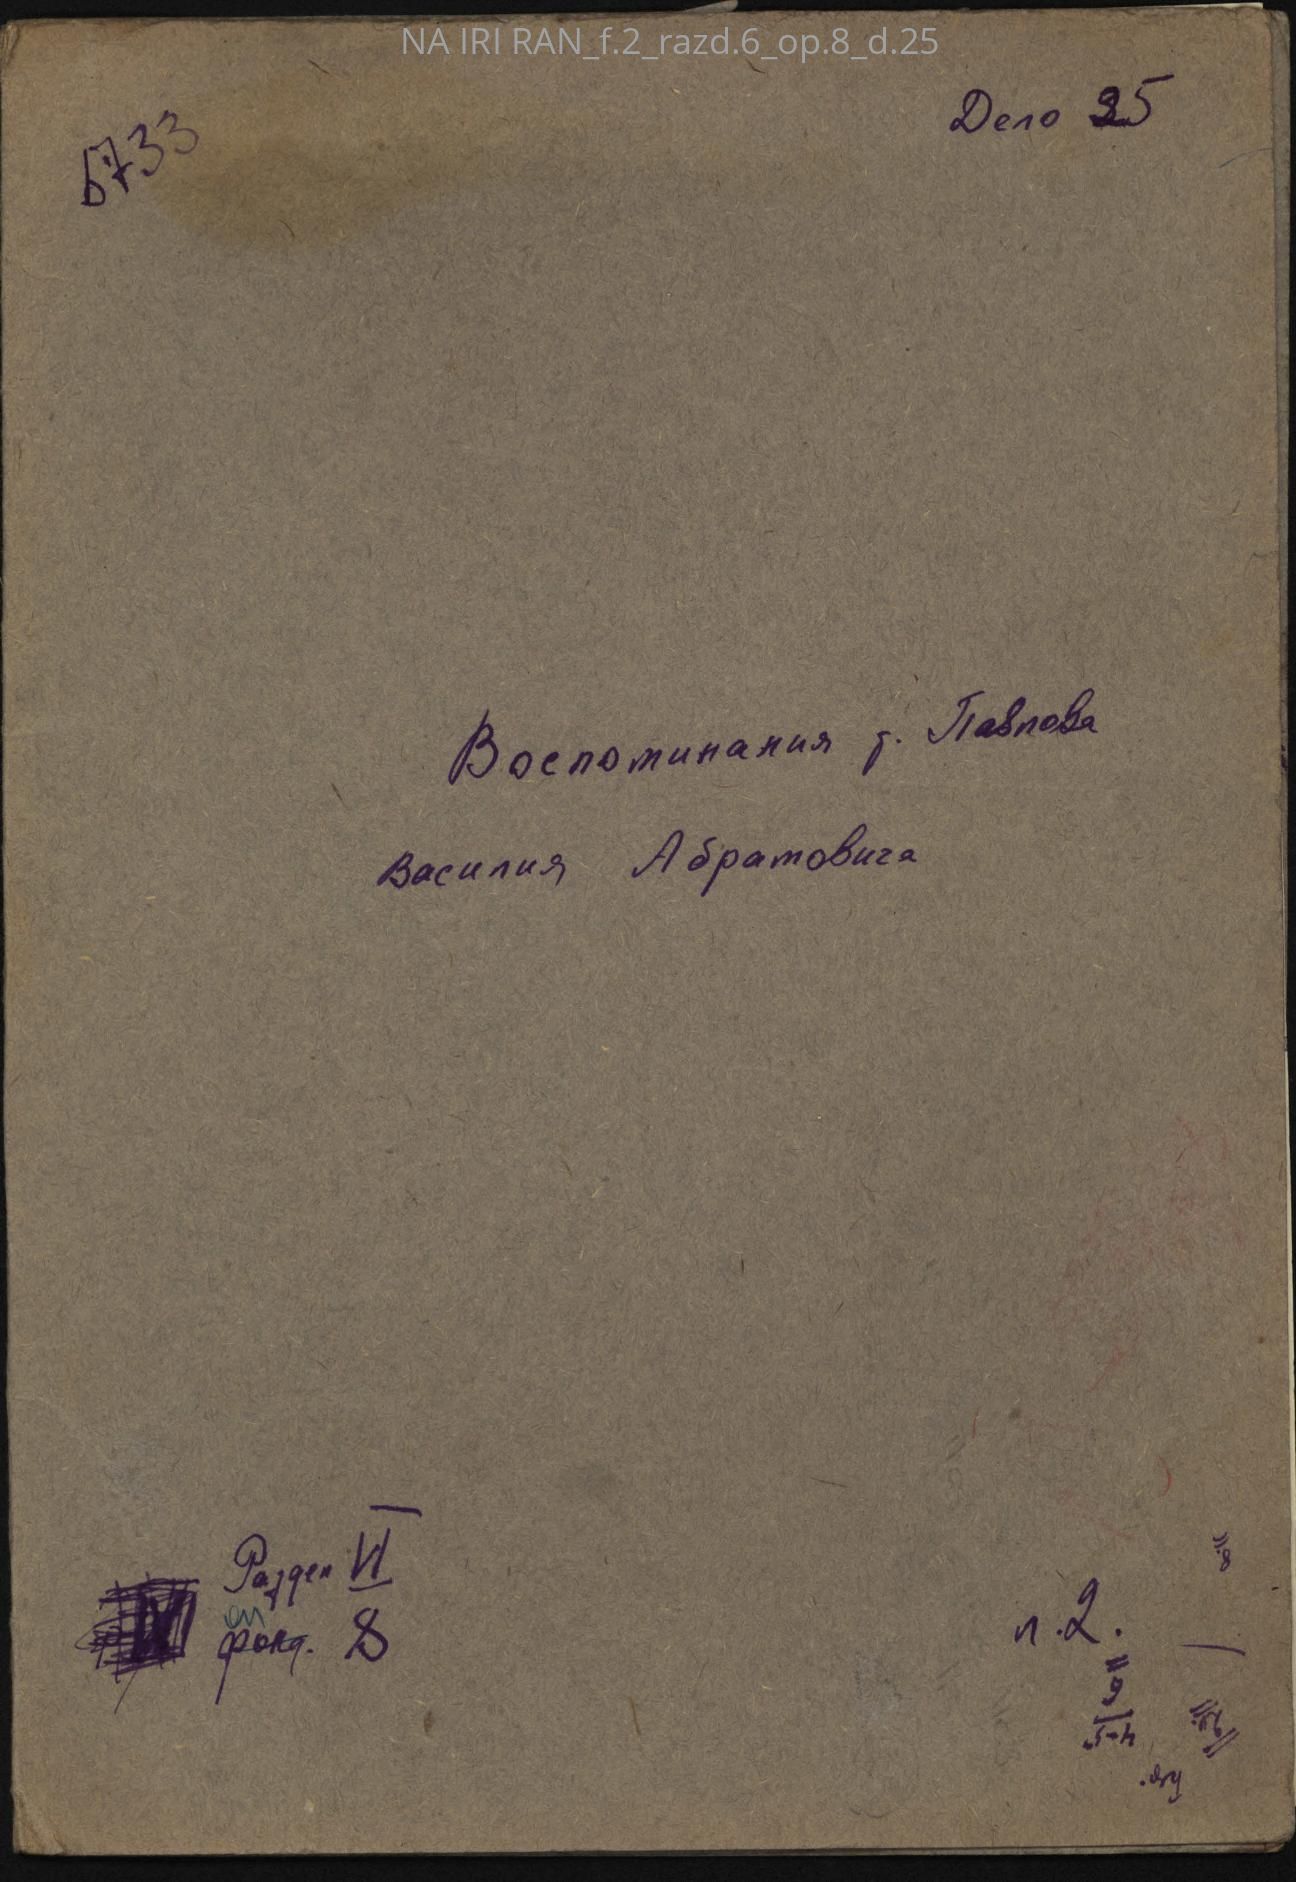 NA IRI RAN_f.2_razd.6_op.8_d.25
Дело 25
6733
Воспоминания т. Павлова
Василия Абрамовича
Раздел VI
оп
фонд. 8
п. 2.